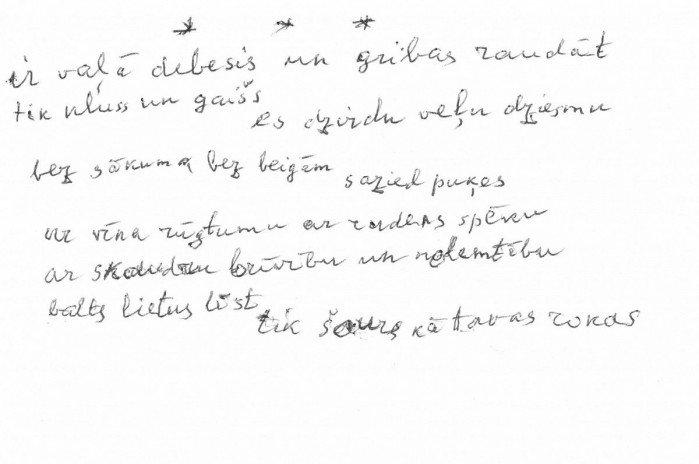 * * *
ir vaļā debesis un gribas raudāt
tik kluss un gaišs
es dzirdu veļu dziesmu
bez sākuma bez beigām
sazied puķes
ar vīna rūgtumu ar rudens spēku
ar skaudru brīvību un nolemtību
balts lietus līst
tik šaurs kā tavas rokas